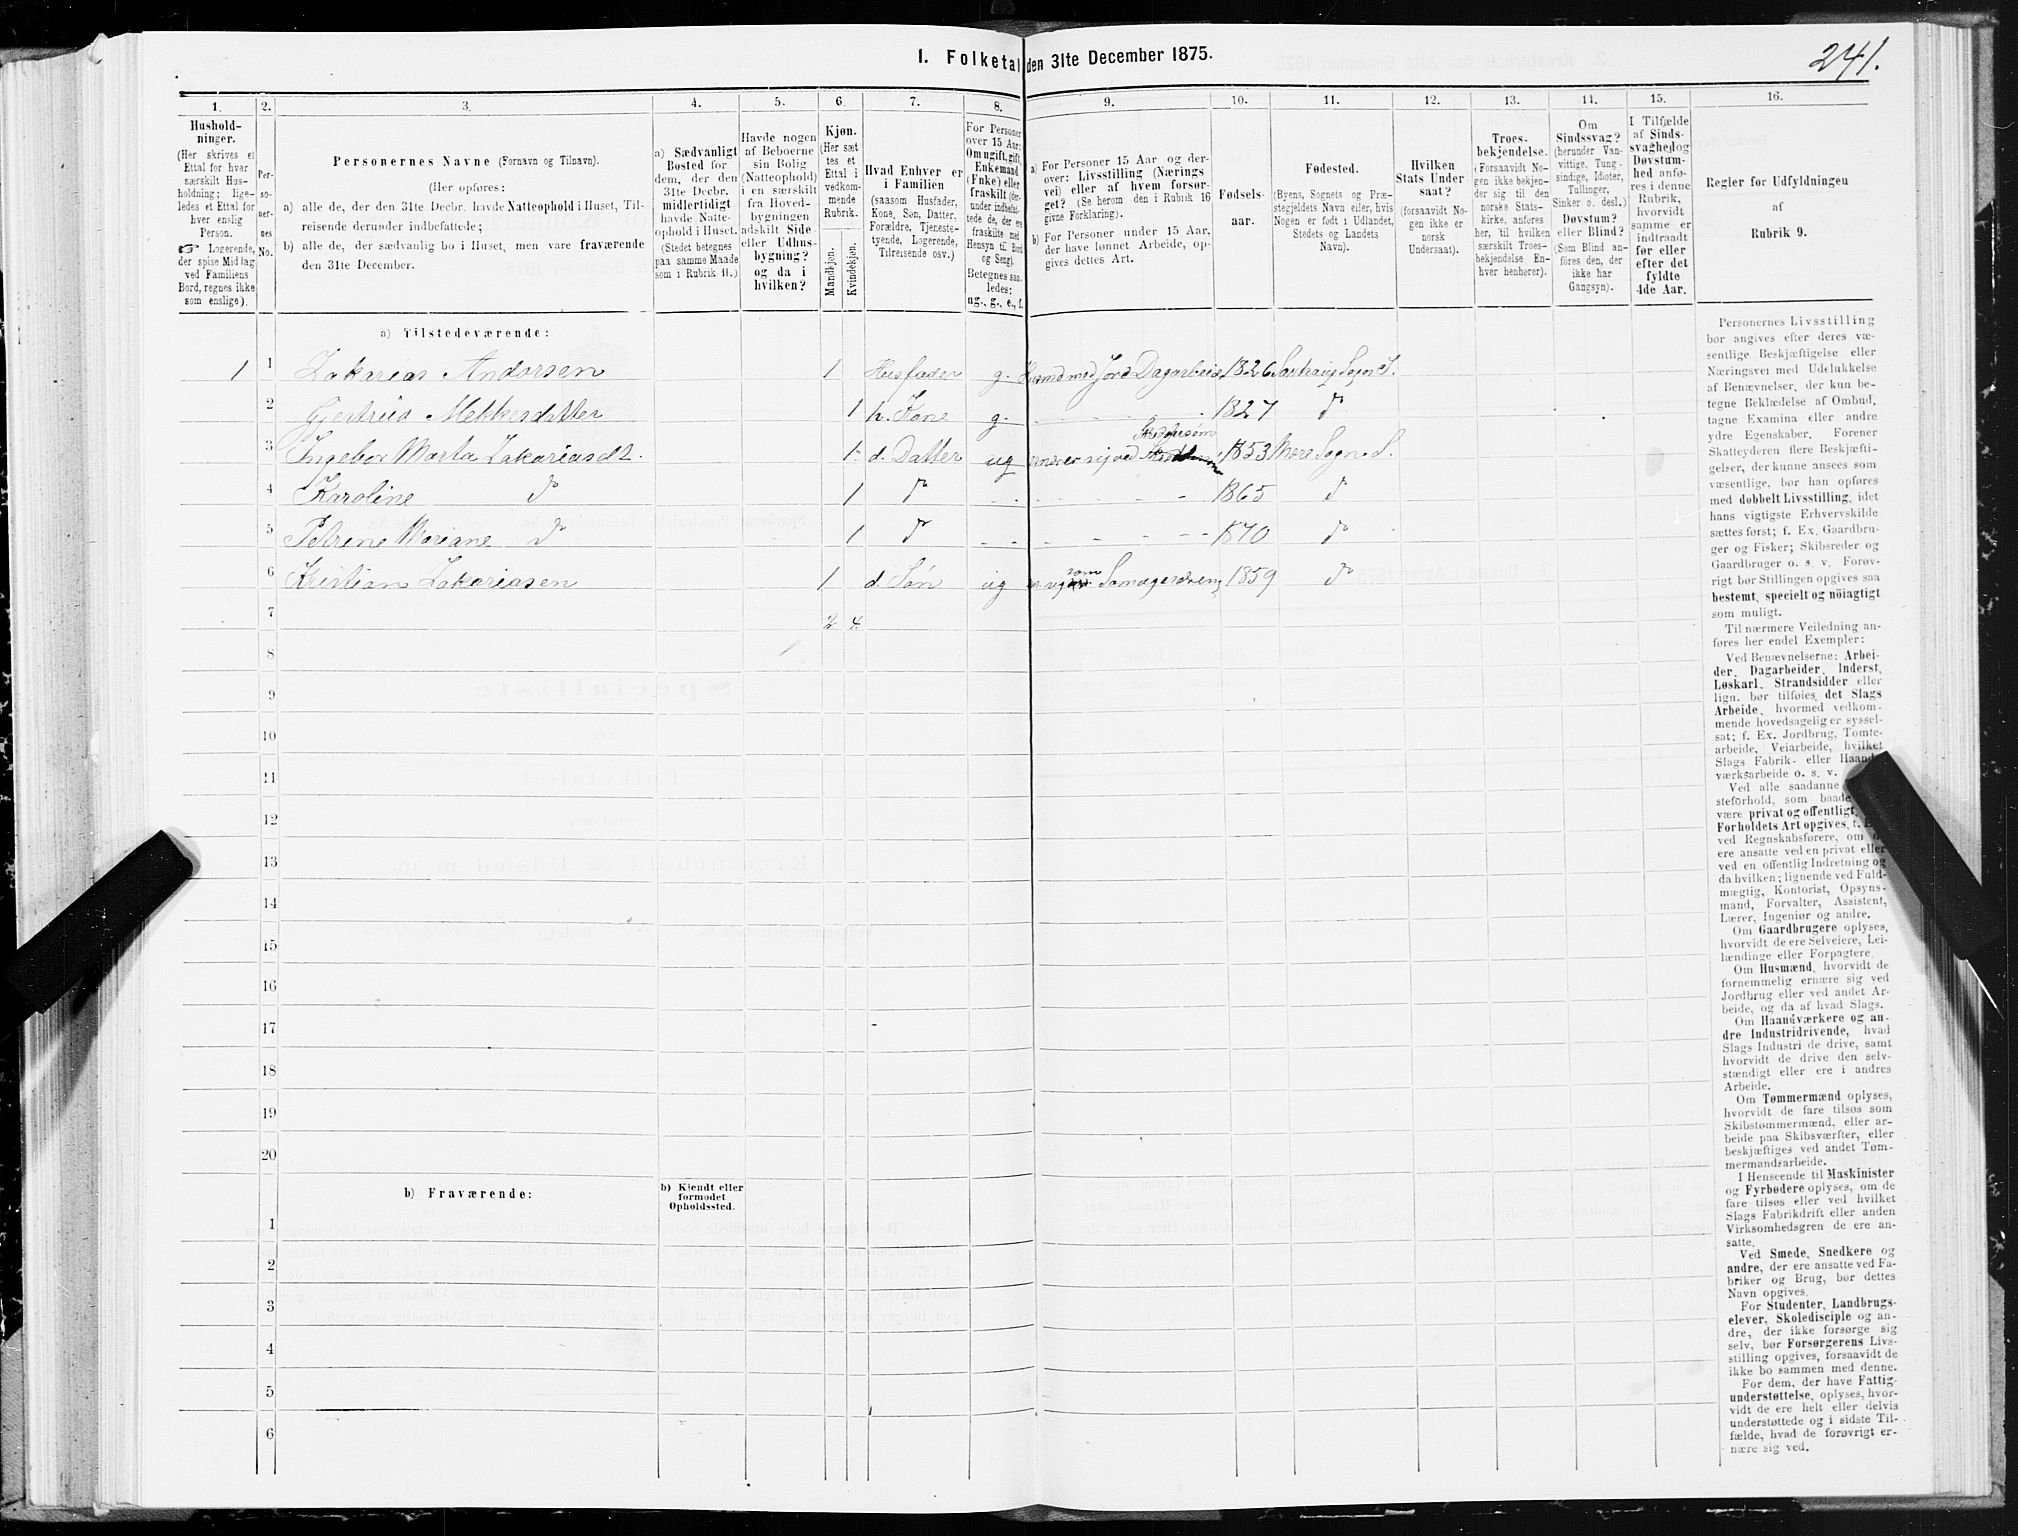 241.
I. Folketal den 31te December 1875.
1. 2. 3. 4. 5. 6. 7. 8. 9. 10. 11. 12. 13. 14. 15. 16.
Hushold-
ninger.
(Her skrives et
Ettal for hver
særskilt Hus-
holdning; lige-
ledes et Ettal for
hver enslig
Person.
☞ Logerende,
der spise Middag
ved Familiens
Bord, regnes ikke
som enslige).
Per-
so-
ner-
nes
No.
Personernes Navne (Fornavn og Tilnavn).
(Her opføres:
a) alle de, der den 31te Decbr. havde Natteophold i Huset, Til-
reisende derunder indbefattede;
b) alle de, der sædvanlig bo i Huset, men vare fraværende
den 31te December.
a) Sædvanligt
Bosted for
dem, der den
31te Decbr.
midlertidigt
havde Natte-
ophold i Huset.
(Stedet betegnes
paa samme Maade
som i Rubrik 11.)
Havde nogen
af Beboerne
sin Bolig
(Natteophold)
i en særskilt
fra Hoved-
bygningen
adskilt Side-
eller Udhus-
bygning?
og da i
hvilken?
Kjøn.
(Her sæt-
tes et
Ettal i
vedkom-
mende
Rubrik.
Mandkjøn.
Kvindekjøn.
Hvad Enhver er
i Familien
(saasom Husfader,
Kone, Søn, Datter,
Forældre, Tjeneste-
tyende, Logerende,
Tilreisende osv.)
For Personer
over 15 Aar:
Om ugift, gift,
Enkemand
(Enke) eller
fraskilt (der-
under indbefat-
tede de, der ere
fraskilte med
Hensyn til Bord
og Seng).
Betegnes saa-
ledes:
ug., g., e., f.
a) For Personer 15 Aar og der-
over: Livsstilling (Nærings-
vei) eller af hvem forsør-
get? (Se herom den i Rubrik 16
givne Forklaring).
b) For Personer under 15 Aar,
der have lønnet Arbeide, op-
gives dettes Art.
Fødsels-
aar.
Fødested.
(Byens, Sognets og Præ-
stegjeldets Navn eller, hvis
Nogen er født i Udlandet,
Stedets og Landets
Navn).
Hvilken
Stats Under-
saat?
(forsaavidt No-
gen ikke er
norsk
Undersaat).
Troes-
bekjendelse.
(Forsaavidt No-
gen ikke bekjen-
der sig til den
norske Stats-
kirke, anføres
her, til hvilken
særskilt Troes-
bekjendelse En-
hver henhører).
Om
Sindssvag?
(herunder Van-
vittige, Tung-
sindige, Idioter,
Tullinger,
Sinker o. desl.)
Døvstum?
eller Blind?
(Som Blind an-
føres den, der
ikke har
Gangsyn).
I Tilfælde
af Sinds-
svaghed og
Døvstum-
hed anfø-
res i denne
Rubrik,
hvorvidt
samme er
indtraadt
før eller
efter det
fyldte
4de Aar.
Regler for Udfyldningen
af
Rubrik 9.
a) Tilstedeværende:
1 1 Zakarias Andersen 1 Husfader g. Husmd med Jord Dagarbeider 1826 Sogn S.
2 Gjertrud Mekkesdatter 1 h. Kone g. 1827 d°
3 Ingebor Marta Zakariasdt. 1 d. Datter ug ernærer sig ved 1853 Sogn S.
4 Karoline d° 1 d° 1865 d°
5 Petrine Mariane d° 1 d° 1870 d°
6 Kristian Zakariasen 1 d. Søn ug som 1859 d°
7 2 4.
8
9
10
11
12
13
14
15
16
17
18
19
20
b) Fraværende:
b) Kjendt eller
formodet
Opholdssted.
1
2
3
4
5
6
Personernes Livsstilling
bør angives efter deres væ-
sentlige Beskjæftigelse eller
Næringsvei med Udelukkelse
af Benævnelser, der kun be-
tegne Beklædelse af Ombud,
tagne Examina eller andre
ydre Egenskaber. Forener
Skatteyderen flere Beskjæfti-
gelser, der kunne ansees som
væsentlige, bør han opføres
med dobbelt Livsstilling, idet
hans vigtigste Erhvervskilde
sættes først; f. Ex. Gaardbru-
ger og Fisker; Skibsreder og
Gaardbruger o. s. v. Forøv-
rigt bør Stillingen opgives saa
bestemt, specielt og nöiagtigt
som muligt.
Til nærmere Veiledning an-
føres her endel Exempler:
Ved Benævnelserne: Arbei-
der, Dagarbeider, Inderst,
Løskarl, Strandsidder eller
lign. bør tilføies det Slags
Arbeide, hvormed vedkom-
mende hovedsagelig er syssel-
sat; f. Ex. Jordbrug, Tomte-
arbeide, Veiarbeide, hvilket
Slags Fabrik- eller Haand-
værksarbeide o. s. v.
Ved alle saadanne
steforhold, som baade
være privat og offentligt,
Forholdets Art opgives, t. E
ved Regnskabsførere, om
ere ansatte ved en privat eller
ved en offentlig Indretning og
da hvilken; lignende ved Fuld-
mægtig, Kontorist, Opsyns-
mand, Forvalter, Assistent,
Lærer, Ingeniør og andre.
Om Gaardbrugere oplyses,
hvorvidt de ere Selveiere, Lei-
lændinge eller Forpagtere.
Om Husmænd, hvorvidt de
fornemmelig ernære sig ved
Jordbrug eller ved andet Ar-
beide, og da af hvad Slags.
Om Haandværkere og an-
dre Industridrivende, hvad
Slags Industri de drive, samt
hvorvidt de drive den selv-
stændigt eller ere i andres
Arbeide.
Om Tømmermænd oplyses,
hvorvidt de fare tilsøs som
Skibstømmermænd, eller ar-
beide paa Skibsværfter, eller
beskjæftiges ved andet Tøm-
mermandsarbeide.
I Henseende til Maskinister
og Fyrbødere oplyses, om de
fare tilsøs eller ved hvilket
Slags Fabrikdrift eller anden
Virksomhedsgren de ere an-
satte.
Ved Smede, Snedkere og
andre, der ere ansatte ved Fa-
briker og Brug, bør dettes
Navn opgives.
For Studenter, Landbrugs-
elever, Skoledisciple og an-
dre, der ikke forsørge sig
selv, bør Forsørgerens Livs-
stilling opgives, forsaavidt de
ikke bo sammen med denne.
For dem, der have Fattig-
understøttelse, oplyses, hvor-
vidt de ere helt eller delvis
understøttede og i sidste Til-
fælde, hvad de forøvrigt er-
nære sig ved.